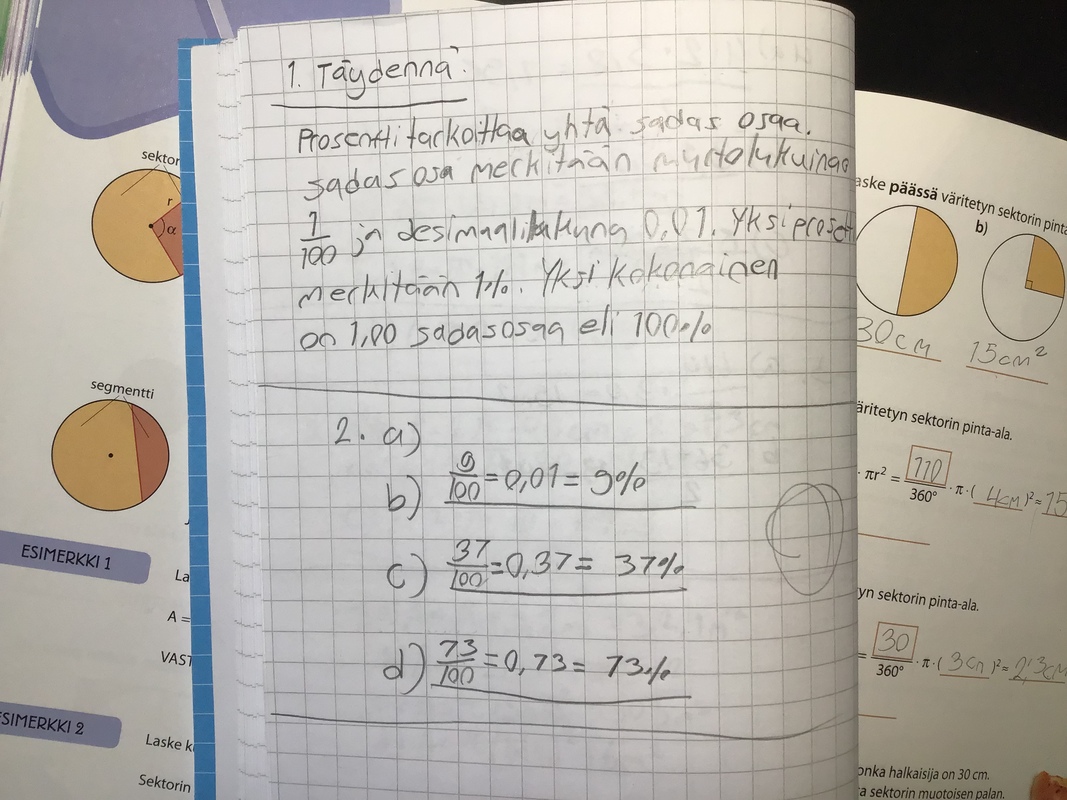 1. Täydennä
Prosentti tarkoittaa yhtä sadas osaa.
sadas osa merkitään murtolukuina
1/100 ja desimaalilukuna 0,01. Yksi proset
merkitään 1%. Yksi kokonainen
on 1,00 sadasosaa eli 100%
2. a)
b) 9/100 = 0,01 = 9%
c) 37/100 = 0,37 = 37%
d) 73/100 = 0,73 = 73%
sektor
r
α
segmentti
ESIMERKKI 1
La
A =
VAST
ESIMERKKI 2
Laske k
Sektorin
aske päässä väritetyn sektorin pinta
b)
30cm
15cm²
äritetyn sektorin pinta-ala.
· πr² = 110/360° · π · ( 4cm )² ≈ 15
yn sektorin pinta-ala.
= 30/360° · π · ( 3cm )² ≈ 2,3cm
onka halkaisija on 30 cm.
a sektorin muotoisen palan.